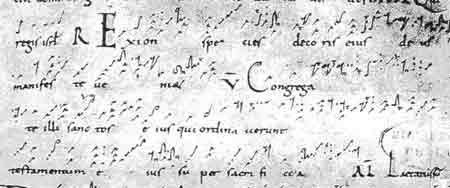 regis isrl R Exion spe cies deco ris eius de us
manifes te ve niet V Congrega
te illi sanc tos e ius qui ordina verunt
testamentum e ius su per sacri fi cia Al Laetatus